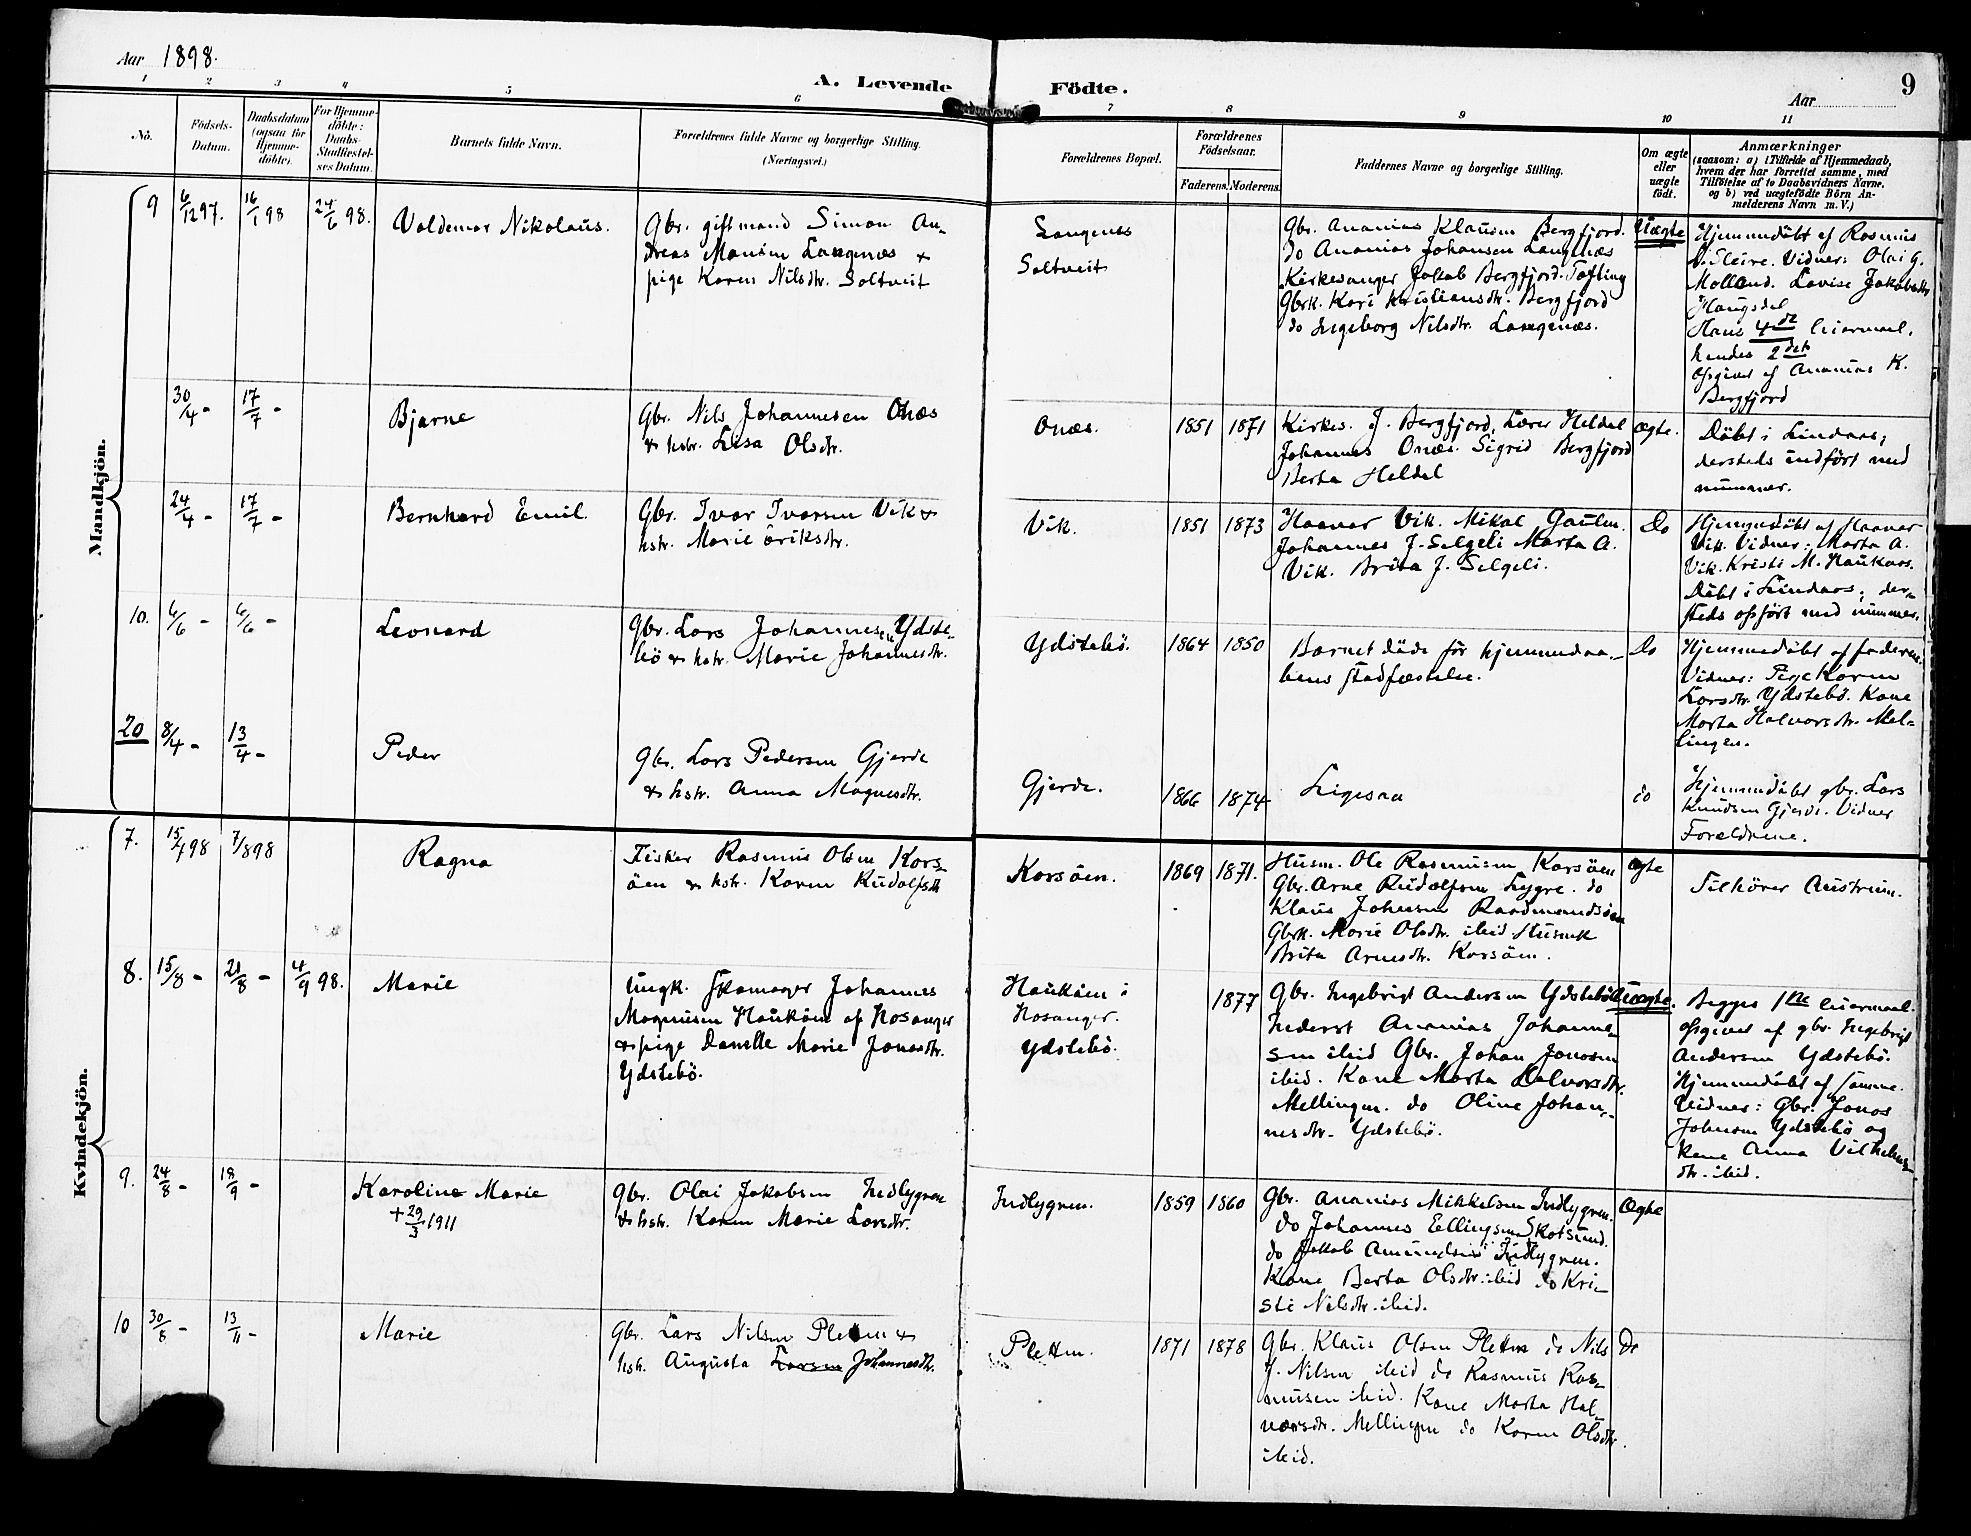 Aar 1898.
A. Levende Födte.
Aar
9
1 2 3 4 5 6 7 8 9 10 11
No.
Födsels-
Datum.
Daabsdatum
(ogsaa för
Hjemme-
döbte).
For Hjemme-
döbte:
Daabs-
Stadfæstel-
ses Datum.
Barnets fulde Navn.
Forældrenes fulde Navne og borgerlige Stilling.
(Næringsvei.)
Forældrenes Bopæl.
Forældrenes
Födselsaar.
Faderens. Moderens.
Faddernes Navne og borgerlige Stilling.
Om ægte
eller
uægte
födt.
Anmærkninger
(saasom: a) i Tilfælde af Hjemmedaab,
hvem der har forrettet samme, med
Tilföielse af to Daabsvidners Navne.
og b) ved uægtefödte Börn An-
melderens Navn m. V.)
Mandkjön.
9 6/12 97. 16/1 98 24/6 98.
Valdemar Nikolaus.
Gbr. giftmand Simon An-
dreas Monsen Langenæs &
pige Karen Nilsdtr. Soltveit
Langenes
Soltveit
Gbr. Ananias Klausen Bergfjord.
do Ananias Johansen Langenæs
Kirkesanger Jakob Bergfjord. Tofting
Gbrk. Kari Kristiansdtr. Bergfjord
do Ingeborg Nilsdtr. Langenæs.
Uægte
Hjemmedöbt af Rasmus
Sleire. Vidner: Olai G.
Molland. Lovise Jakobsdtr
Haugsdal
Hans 4de leiermaal.
hendes 2det
Opgivet af Ananias K.
Bergfjord
30/4 - 17/7 -
Bjarne
Gbr. Nils Johannesen Onæs
& hstr. Lisa Olsdtr.
Onæs.
1851 1871
Kirkes. J. Bergfjord, Lærer Heldal
Johannes Onæs. Sigrid Bergfjord
Berta Heldal
ægte.
Döbt i Lindaas,
dersteds indfört med
nummer.
24/4 - 17/7 -
Bernhard Emil.
Gbr. Ivar Ivarsen Vik &
hstr. Marie Eriksdtr.
Vik.
1851 1873
Haavar Vik. Mikal
Johannes J. Selgeli Marta A.
Vik. Brita J. Selgeli.
Do
Hjemmedöbt af Haavar
Vik. Vidner: Marta A.
Vik. Kristi M. Haukaas.
Döbt i Lindaas, der-
steds opfört med nummer.
10. 6/6 - 6/6 -
Leonard
Gbr. Lars Johannesen Ydste-
bö & hstr. Marie Johannesdtr.
Ydstebö.
1864 1850
Barnet döde för hjemmedaa-
bens stadfæstelse.
Do
Hjemmedöbt af faderen.
Vidner: Pige Karen
Larsdtr. Ydstebö. Kone
Marta Halvorsdtr. Mel-
lingen.
20 8/4 - 13/4 -
Peder
Gbr. Lars Pedersen Gjerde
& hstr. Anna Magnesdtr.
Gjerde.
1866 1874
Ligesaa
do
Hjemmedöbt gbr. Lars
Knudsen Gjerde. Vidner
Forældrene.
Kvindekjön.
7. 15/4 98 7/8 98
Ragna
Fisker Rasmus Olsen Kors-
öen & hstr. Karen Rudolfsdtr
Korsöen.
1869 1871.
Husm. Ole Rasmussen Korsöen
Gbr. Arne Rudolfsen Lygre. do
Klaus Johnsen Raadmandsöen
Gbrk. Marie Olsdtr. ibid. Husmk
Brita Arnesdtr. Korsöen.
ægte
Tilhörer Austrum.
8. 15/8 - 21/8 - 4/9 98.
Marie
Ungk. Skomager Johannes
Magnusen Hauköen af Hosanger
& pige Danelle Marie Jonasdtr.
Ydstebö.
Hauköen i
Hosanger.
Ydstebö.
1877
Gbr. Ingebrigt Andersen Ydstebö
Inderst Ananias Johanne-
sen ibid Gbr. Johan Jonasen
ibid. Kone Marta Halvorsdtr.
Mellingen. do Oline Johan-
nesdtr. Ydstebö.
Uægte.
Begges 1ste leiermaal
opgivet af gbr. Ingebrigt
Andersen Ydstebö.
Hjemmedöbt af samme.
Vidner: Gbr. Jonas
Johnsen Ydstebö og
kone Anna Vilhelms
dtr. ibid.
9. 24/8 - 18/9 -
Karoline Marie
+ 29/3 1911
Gbr. Olai Jakobsen Indlygren
& hstr. Karen Marie Larsdtr.
Indlygren.
1859 1860
Gbr. Ananias Mikkelsen Indlygren.
do Johannes Ellingsen Skotsund.
do Jakob Amundsen Indlygren.
Kone Berta Olsdtr. ibid do Kri-
sti Nilsdtr. ibid.
Ægte
10 30/8 - 13/11 -
Marie
Gbr. Lars Nilsen Pletten &
hstr. Augusta Larsen Johannesdtr.
Pletten.
1871 1878
Gbr. Klaus Olsen Pletten do Nils
J. Nilsen ibid do Rasmus Ras-
musen ibid. Kone Marta Hal-
vorsdtr. Mellingen do Karen Olsdtr.
ibid.
Do